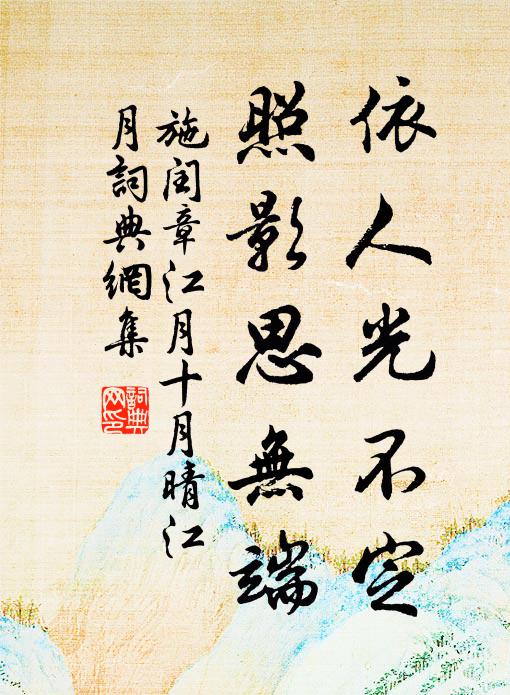 依人光不定
照影思無端
施閏章江月十月晴江
月詞典網集
詞典
网印